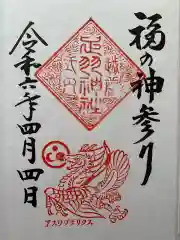 福の神参り
足羽神社
令和六年四月四日
アスワプテリクス